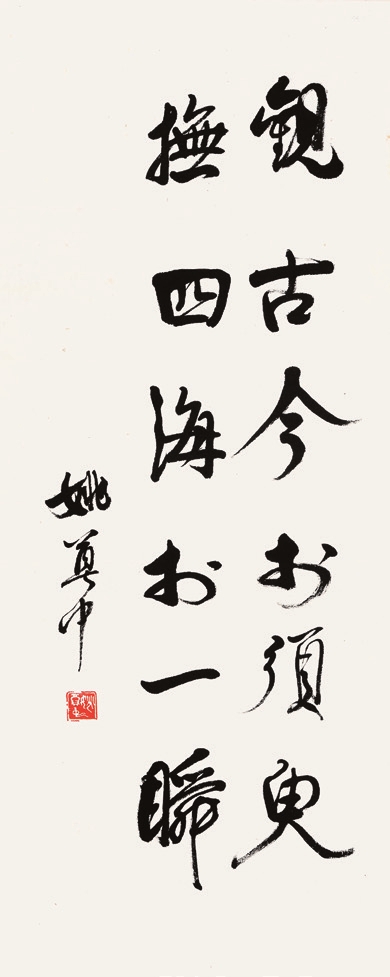 觀古今於須臾
撫四海於一瞬
姚奠中